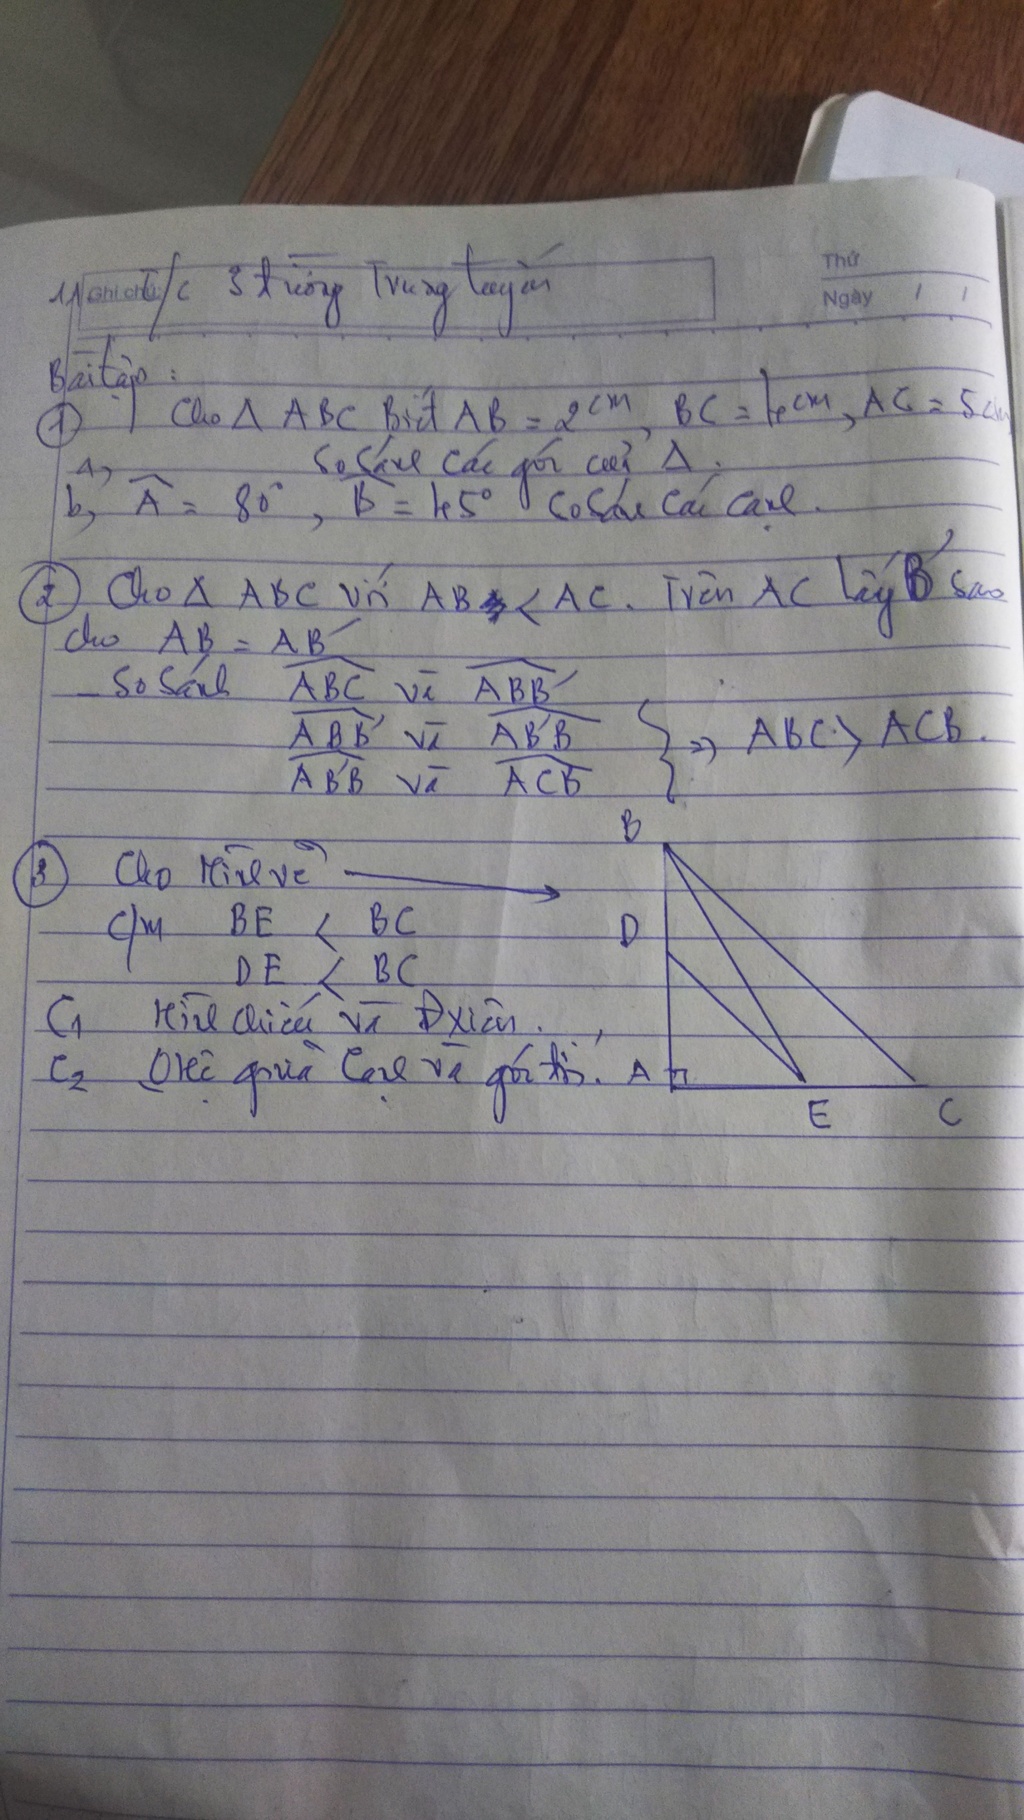 11, T/c 3 đường Trung tuyến
Ghi chú:
Thứ
Ngày / /
Bài tập :
① Cho Δ ABC Biết AB = 2cm, BC = 4cm, AC = 5cm
a, So Sánh Các góc của Δ.
b, Â = 80°, B̂ = 45° So Sánh Các Cạnh.
② Cho Δ ABC với AB < AC. Trên AC lấy B' Sao
cho AB = AB'
- So Sánh ABC và ABB'
ABB' và AB'B } => ABC > ACB.
AB'B và ACB
③ Cho Hình vẽ
C/m BE < BC
DE < BC
C1 Hình chiếu và Đ xiên.
C2 Q hệ giữa Cạnh và góc
B
D
A
E
C